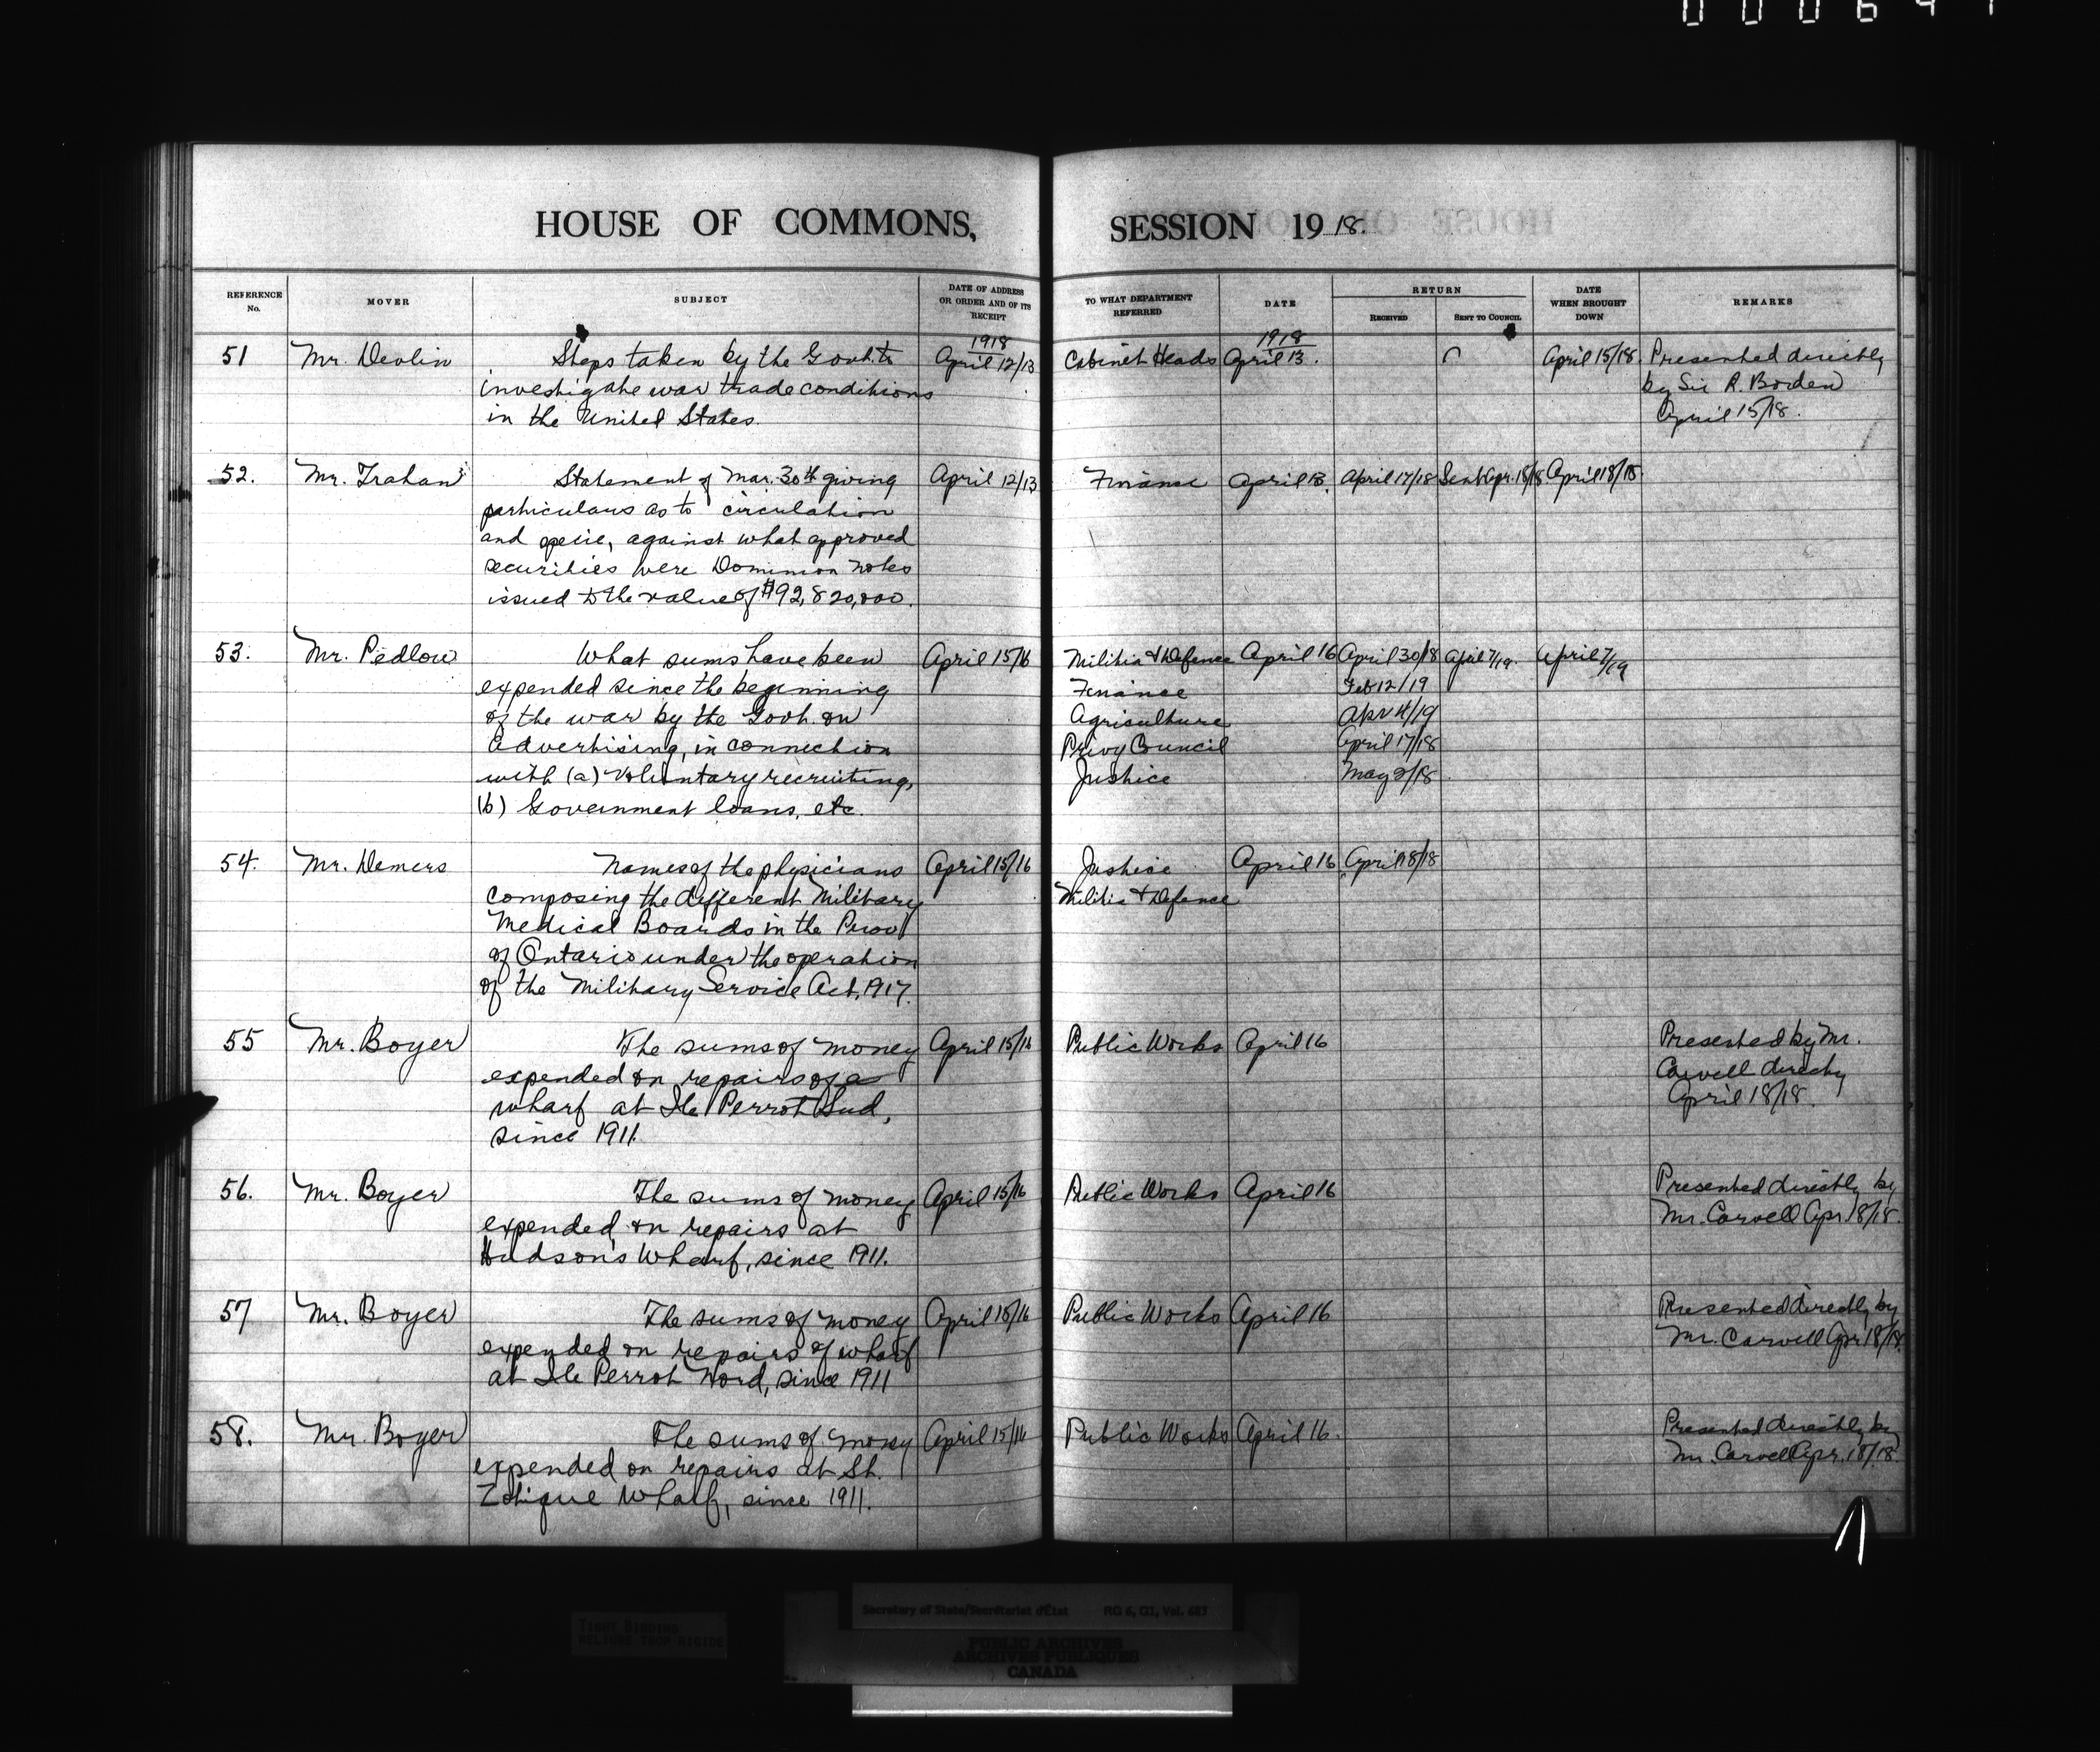 HOUSE OF COMMONS, SESSION 1918.
REFERENCE No. MOVER SUBJECT DATE OF ADDRESS OR ORDER AND OF ITS RECEIPT TO WHAT DEPARTMENT REFERRED DATE RETURN RECEIVED SENT TO COUNCIL DATE WHEN BROUGHT DOWN REMARKS
1918 1918
51 Mr. Devlin Steps taken by the Govt. to April 12/13 Cabinet Heads April 13. April 15/18. Presented directly
investigate war trade conditions by Sir R. Borden
in the United States. April 15/18.
52. Mr. Trahan Statement of Mar. 30th giving April 12/13 Finance April 13. April 17/18 Sent Apr. 18/18 April 18/18
particulars as to circulation
and specie, against what approved
securities were Dominion notes
issued to the value of $92,820,000.
53. Mr. Pedlow What sums have been April 15/16 Militia & Defence April 16 April 30/18 April 7/19. April 7/19
expended since the beginning Finance Feb 12/19
of the war by the Govt. on Agriculture Apr 4/19
advertising, in connection Privy Council April 17/18
with (a) Voluntary recruiting, Justice May 2/18
(b) Government loans, etc.
54. Mr. Demers Names of the physicians April 15/16 Justice April 16 April 18/18
composing the different Military Militia & Defence
Medical Boards in the Prov
of Ontario under the operation
of the Military Service Act, 1917.
55 Mr. Boyer The sums of money April 15/16 Public Works April 16 Presented by Mr.
expended on repairs of a Carvell directly
wharf at Ile Perrot Sud, April 18/18.
since 1911.
56. Mr. Boyer The sums of money April 15/16 Public Works April 16 Presented directly by
expended on repairs at Mr. Carvell Apr. 18/18.
Hudson's Wharf, since 1911.
57 Mr. Boyer The sums of money April 15/16 Public Works April 16 Presented directly by
expended on repairs of wharf Mr. Carvell Apr 18/18.
at Ile Perrot Nord, since 1911
58. Mr. Boyer The sums of money April 15/16 Public Works April 16. Presented directly by
expended on repairs at St. Mr. Carvell Apr. 18/18.
Zotique Wharf, since 1911.
Secretary of State/Secrétariat d'État RG 6, G1, Vol. 687
TIGHT BINDING
RELIURE TROP RIGIDE
PUBLIC ARCHIVES
ARCHIVES PUBLIQUES
CANADA